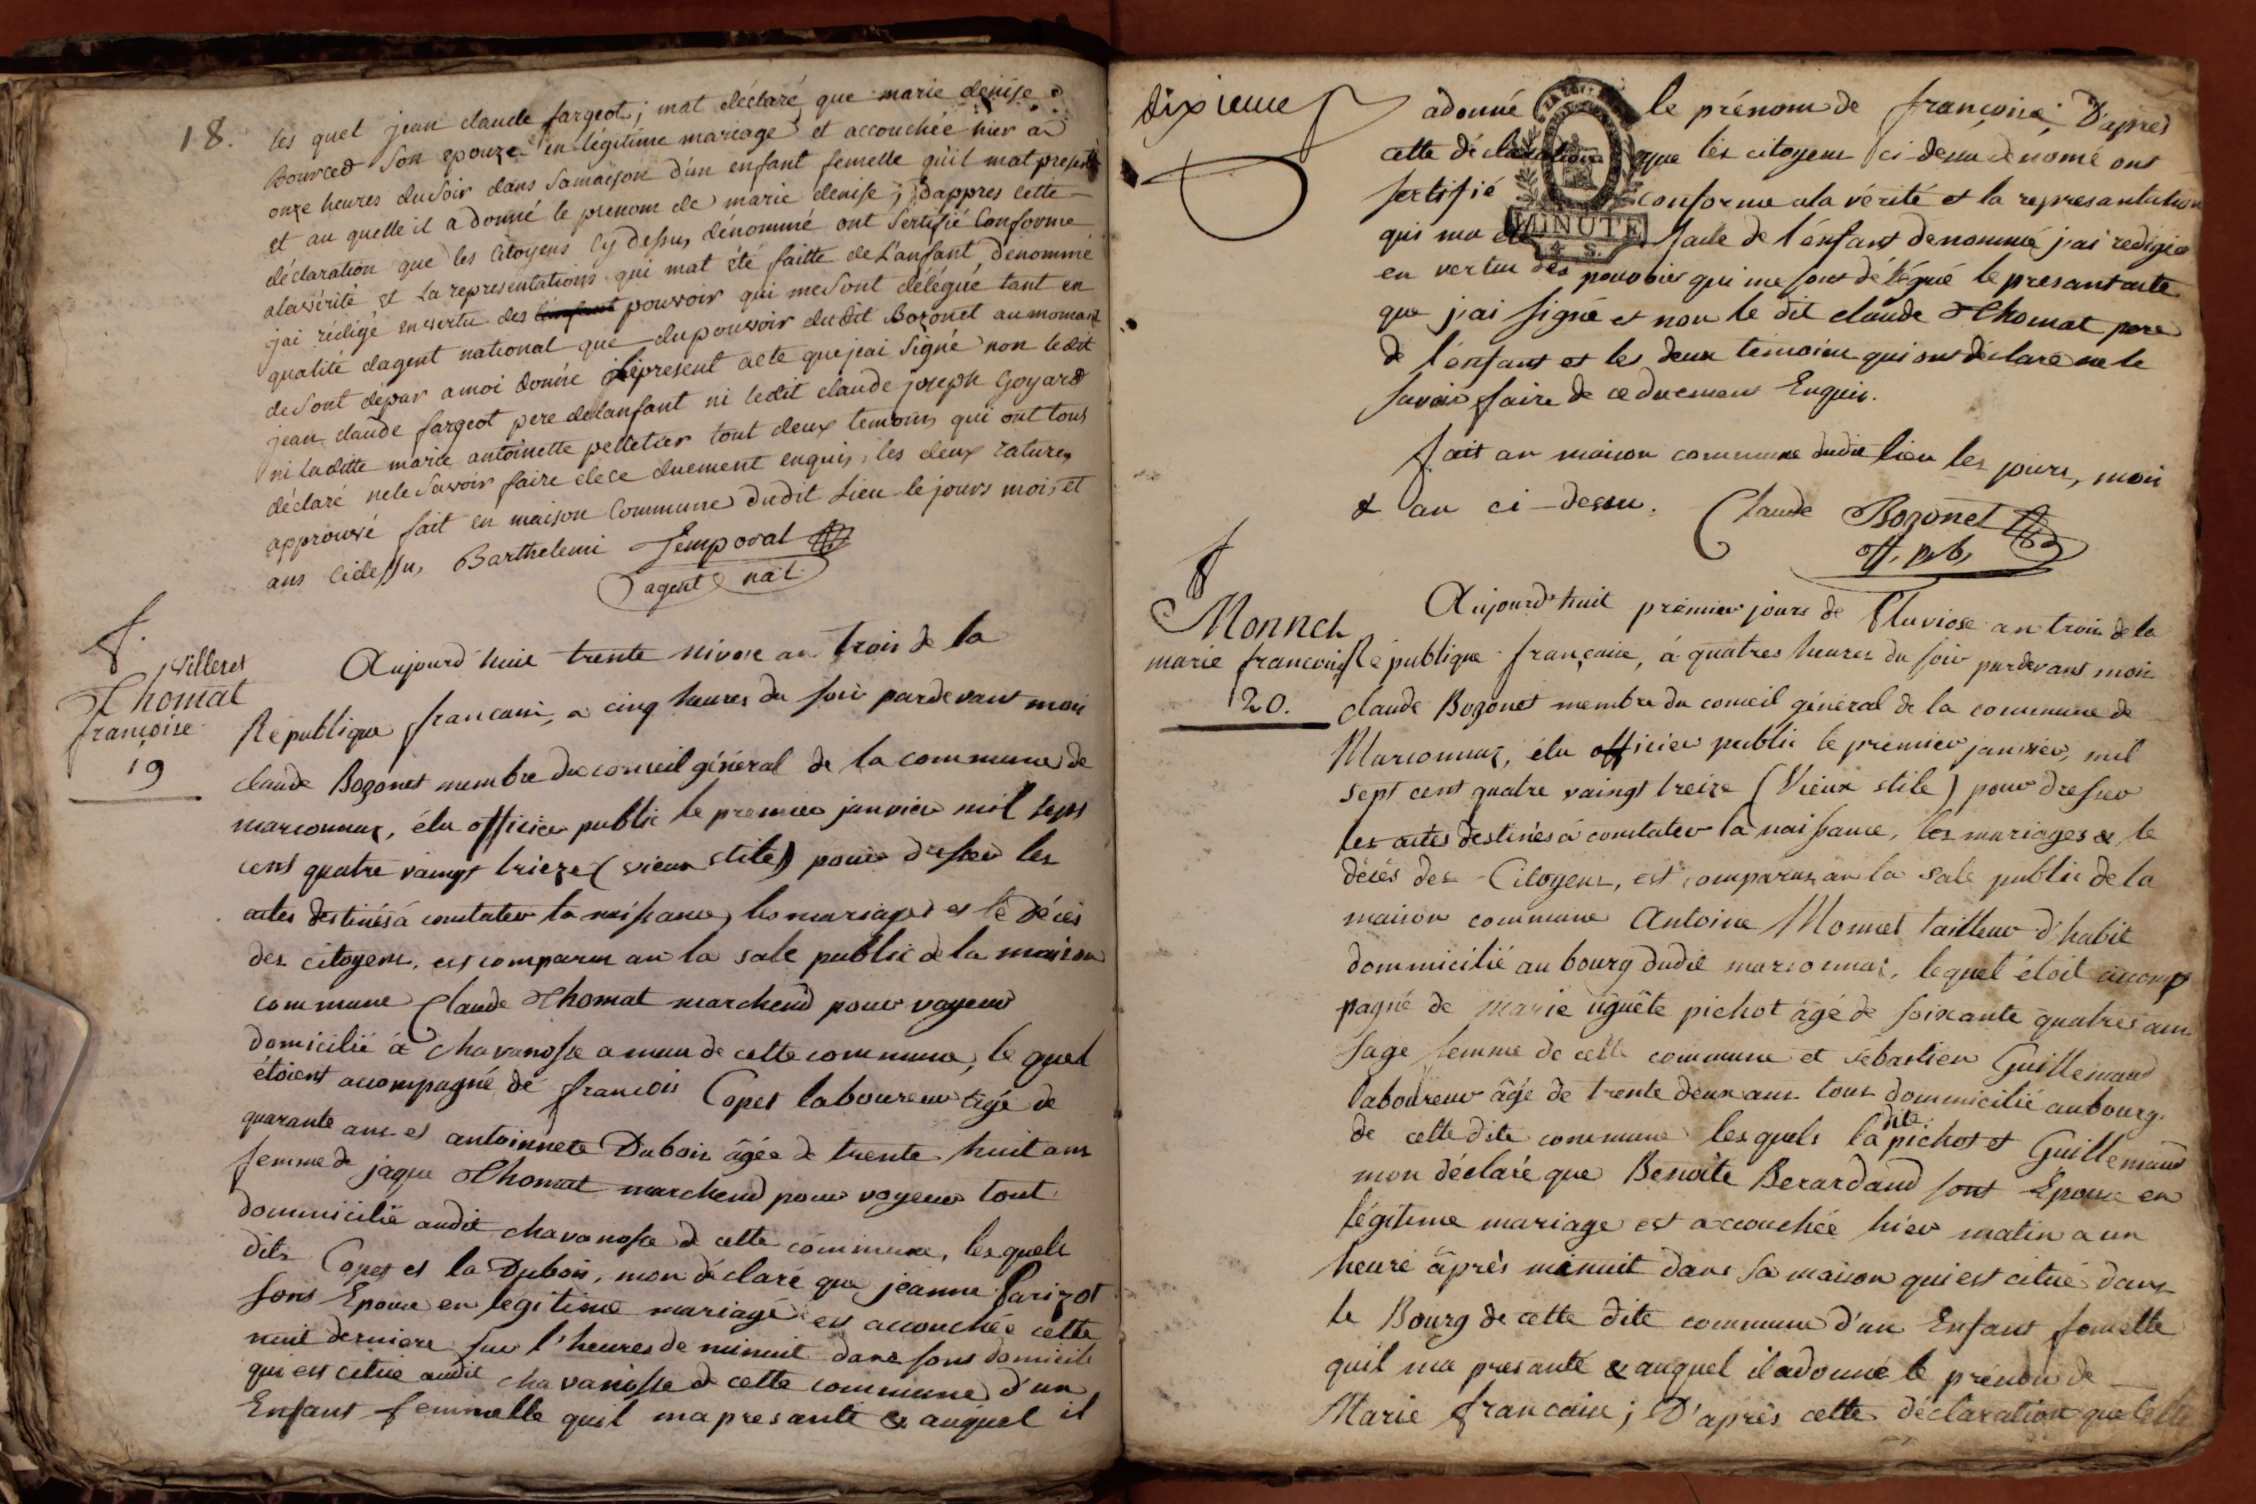 18.
les quel jean claude fargeot; mat déclaré que marie denise
Bourced son epouze en légitime mariage et accouchée hier a
onze heures du soir dans samaison d'un enfant femelle quil mat presenté
et au quelle il a donné le prenom de marie denise; dappres cette
déclaration que les citoyens cy dessus dénommé ont sertifié conforme
alavérité et la representations qui mat été faitte de l'anfant dénommé
jai rédigé en vertu des pouvoir qui me sont délégué tant en
qualité dagent national que du pouvoir du dit Bozonet au momant
de sont dépar amoi donné le present acte que jai signé non ledit
jean claude fargeot pere de lanfant ni ledit claude joseph Goyard
ni la ditte marie antoinette pelletier tout deux temoins qui ont tous
déclaré ne le savoir faire de ce duement enquis, les deux ratures
approuvé fait en maison commune dudit lieu le jours mois et
ans cidessus Barthelemi Temporal
agent nat.
f.
villeres
Thomat
françoise
19
Aujourd'huit trente nivose an trois de la
République francaise, a cinq heures du soir pardevant moi
claude Bozonet membre du conseil général de la commune de
marconnaz, élu officier public le premier janvier mil sept
cent quatre vaingt trieze (vieux stile) pour dresser les
actes destinés à constater la naissance, les mariages et le décès
des citoyens, est comparus an la sale public de la maison
commune Claude Thomat marchend pour voyeur
domicilié à chavanosse ameau de cette commune, le quel
étoient accompagné de francois Copet laboureur agé de
quarante ans et antoinnete Dubois âgée de trente huit ans
femme de jaque Thomat marchend pour voyeur tout
dommicilié audit chavanosse de cette commune, lesquels
dits Copet et la Dubois, mon déclaré que jeanne Parizot
sons Epouse en legitime mariage est accouchée cette
nuit derniere sur l'heures de minuit dans sons domicile
qui est citué audit chavanosse de cette commune d'un
Enfant femmelle quil ma presanté & auquel il
dixieme
adonné le prénom de françoise; D'apres
cette déclaration que les citoyens ci dessu denomé ont
sertifié conforme ala vérité et la represantation
qui ma été faite de l'énfant denommé j'ai redigée
MINUTE
en vertue des pouvoir qui me sont délégué le presant acte
que j'ai signé et non le dit claude Thomat pere
de l'énfant et les deux temoins qui ont déclaré ne le
savoir faire de ce duement Enquis.
fait an maison commune dudit lieu les jours, mois
& an ci-dessu. Claude Bozonet
off. pub.
f
Monnet
marie francoise
20.
Aujourd'huit prémier jours de Pluviose an trois de la
République françaisse, à quatres heures du soir pardevant moi
claude Bozonet membre du conseil général de la commune de
Marconnaz, élu officier public le premier janvier, mil
sept cent quatre vaingt treize (Vieux stile) pour dresser
les actes destinés à constater la naissance, les mariages & le
décès des Citoyens, est comparus an la sale public de la
maison commune Antoine Monnet tailleur d'habit
dommicilié au bourg dudit marconnaz, lequel étoit accom
pagné de Marie uguéte pichot âgé de soixante quatres ans
sage femme de cette commune et sébastien Guillemaud
laboureur âgé de trente deux ans tous dommicilié aubourg
de cette dite commune lesquels la dite pichot et Guillemaud
mon déclaré que Benoite Berardand sont Epouse en
légitime mariage est accouchée hier matin a un
heure âprès minuit dans sa maison qui est citué dans
le Bourg de cette dite commune d'un Enfant femelle
quil ma presanté & auquel il adonné le prénom de
Marie francaise; D'aprés cette déclaration que